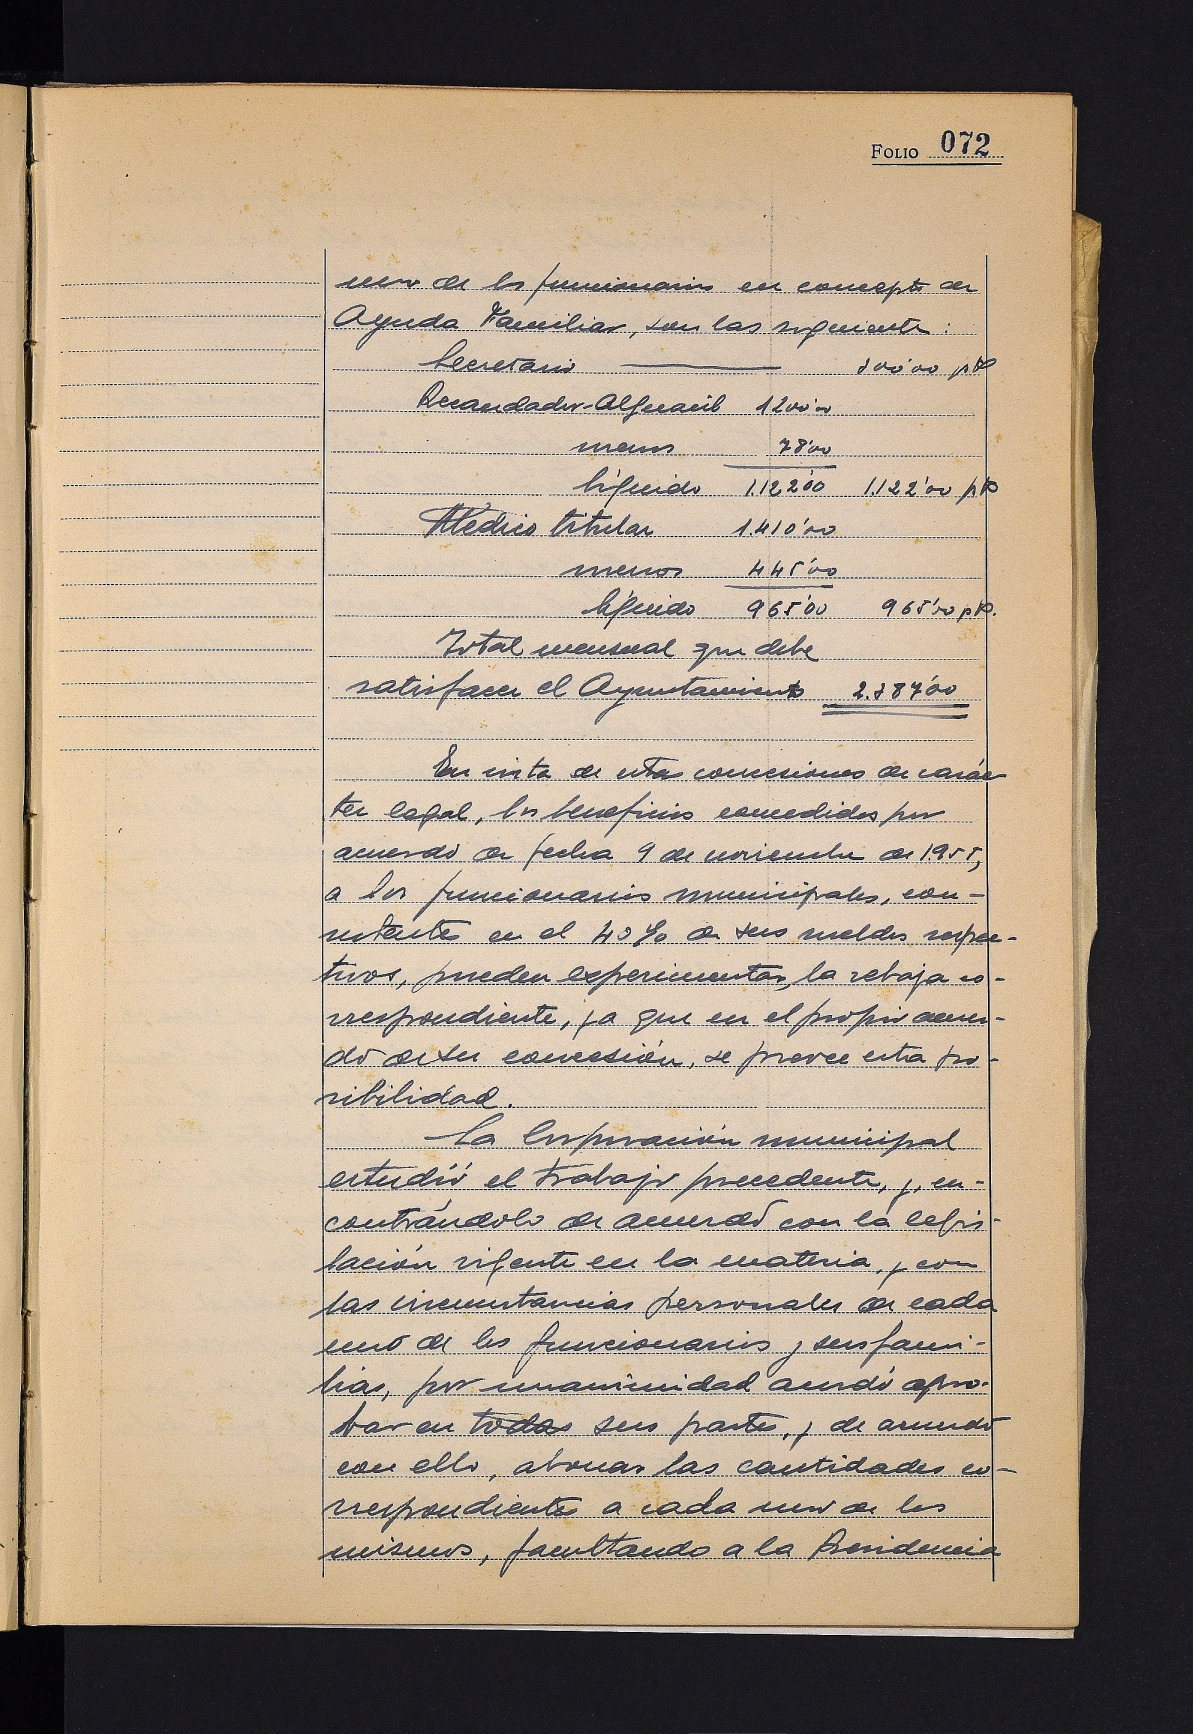 FOLIO 072
uno de los funcionarios en concepto de
Ayuda Familiar, son las siguientes:
Secretario 300'00 pts
Recaudador-Alguacil 1200'00
menos 78'00
líquido 1.122'00 1.122'00 pts
Médico titular 1.410'00
menos 445'00
líquido 965'00 965'00 pts.
Total mensual que debe
satisfacer el Ayuntamiento 2.387'00
En vista de estas concesiones de carác-
ter legal, los beneficios concedidos por
acuerdo de fecha 9 de noviembre de 1955,
a los funcionarios municipales, con-
sistentes en el 40% de sus sueldos respec-
tivos, pueden experimentar, la rebaja co-
rrespondiente, ya que en el propio acuer-
do de su concesión, se prevee esta po-
sibilidad.
La Corporación municipal
estudió el trabajo precedente, y, en-
contrándolo de acuerdo con la legis-
lación vigente en la materia, y con
las circunstancias personales de cada
uno de los funcionarios y sus fami-
lias, por unanimidad acordó apro-
bar en todas sus partes, y de acuerdo
con ello, abonar las cantidades co-
rrespondientes a cada uno de los
mismos, facultando a la Presidencia